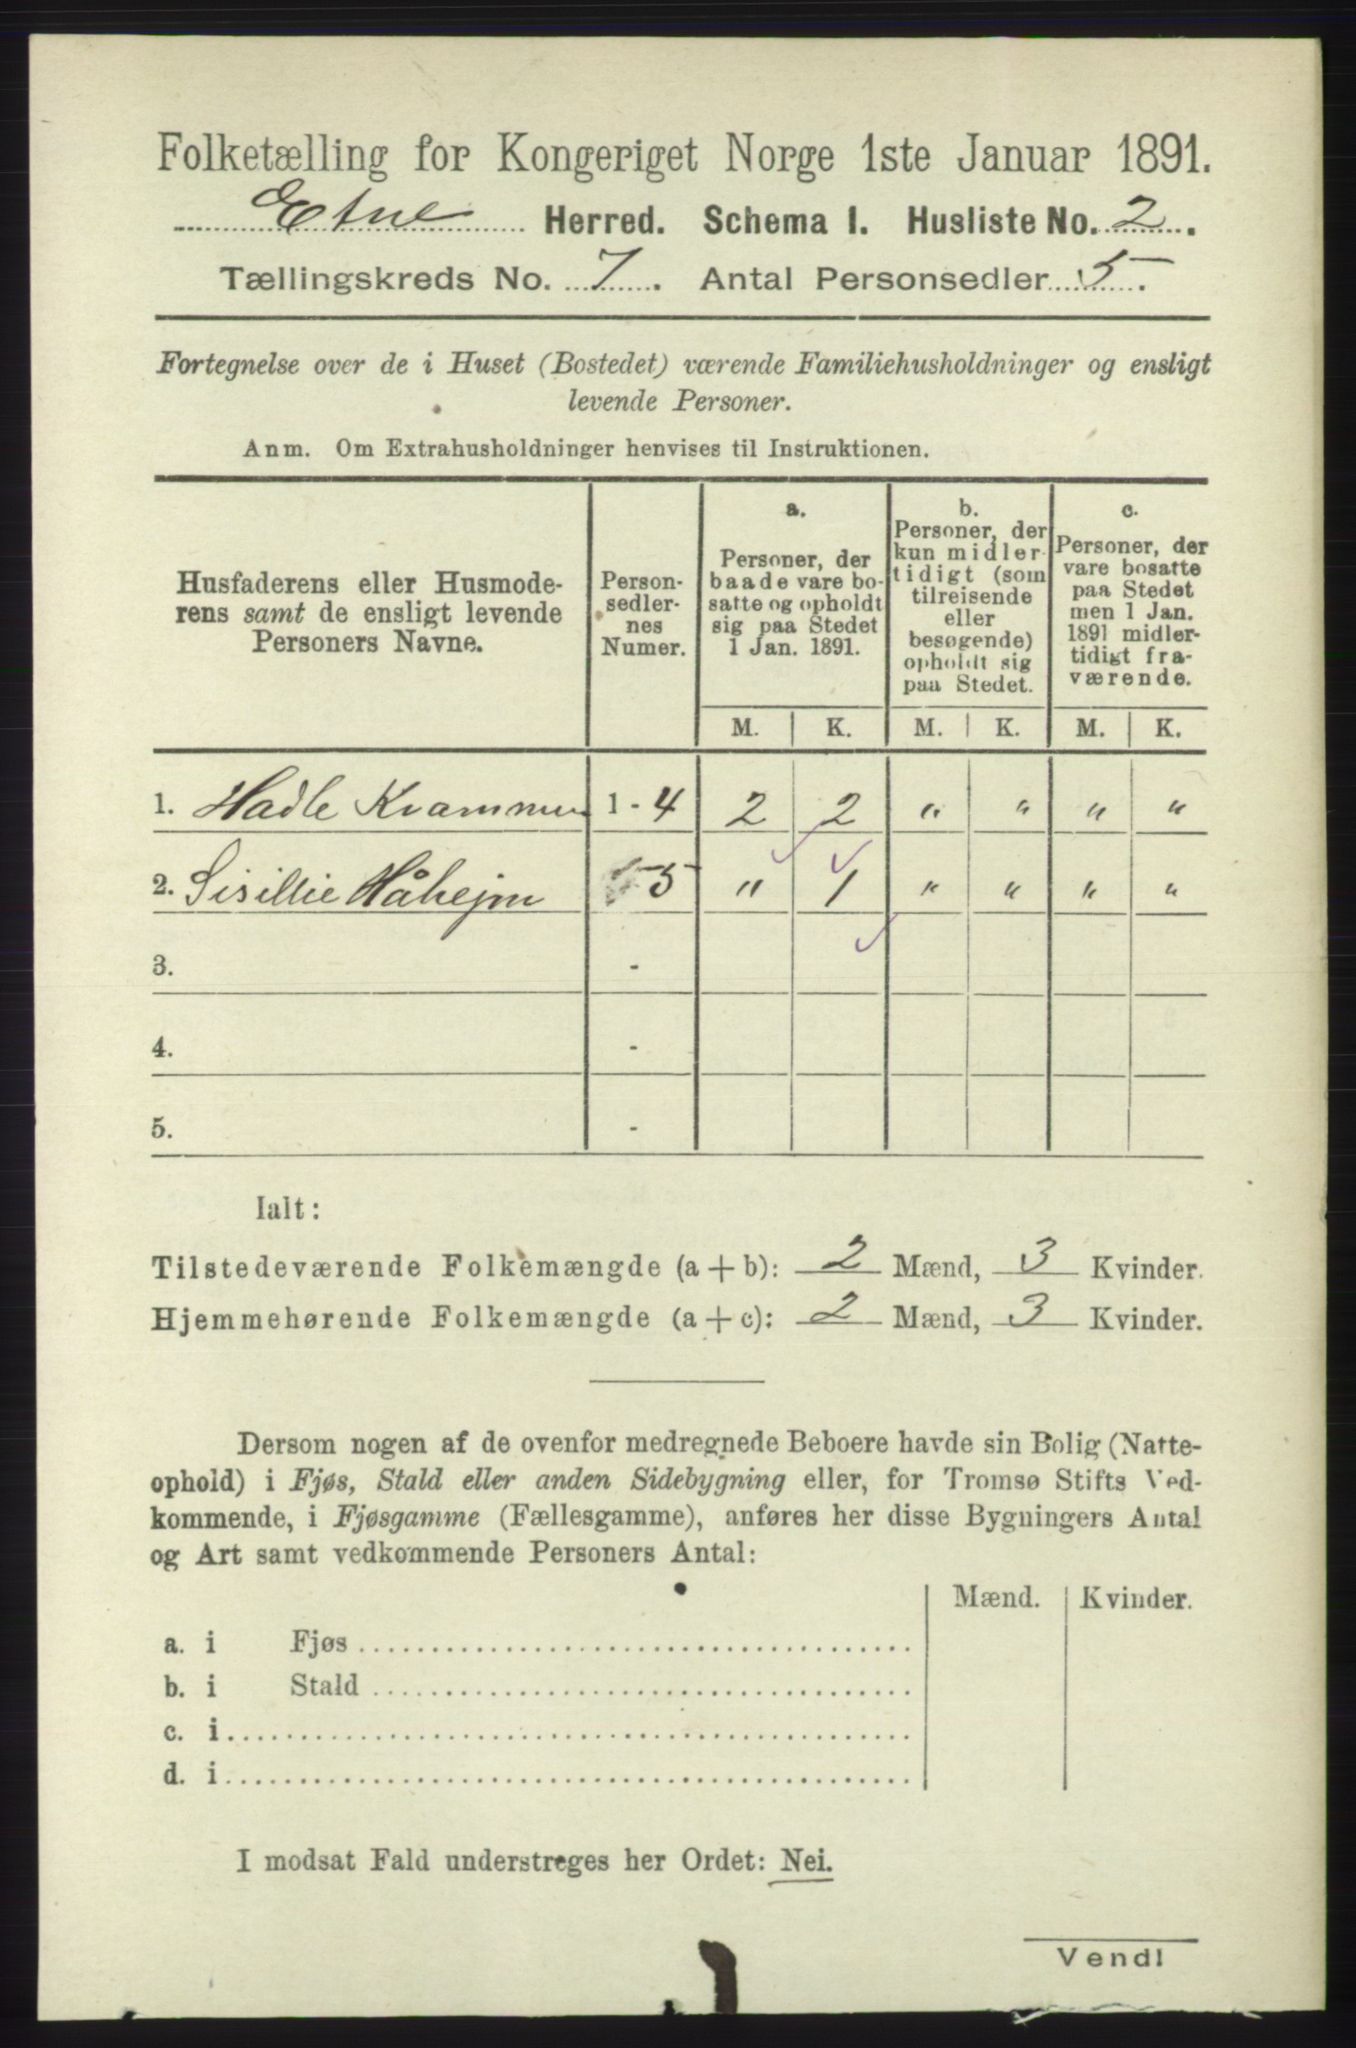 Folketælling for Kongeriget Norge 1ste Januar 1891.
Etne Herred. Schema I. Husliste No. 2.
Tællingskreds No. 7. Antal Personsedler 5.
Fortegnelse over de i Huset (Bostedet) værende Familiehusholdninger og ensligt
levende Personer.
Anm. Om Extrahusholdninger henvises til Instruktionen.
Husfaderens eller Husmode-
rens samt de ensligt levende
Personers Navne.
Person-
sedler-
nes
Numer.
a.
Personer, der
baade vare bo-
satte og opholdt
sig paa Stedet
1 Jan. 1891.
b.
Personer, der
kun midler-
tidigt (som
tilreisende
eller
besøgende)
opholdt sig
paa Stedet.
c.
Personer, der
vare bosatte
paa Stedet
men 1 Jan.
1891 midler-
tidigt fra-
værende.
M. K. M. K. M. K.
1. Hadle Kvammen 1 - 4 2 2 " " " "
2. Sisillie Håheim 5 " 1 " " " "
3. -
4. -
5. -
Ialt:
Tilstedeværende Folkemængde (a + b): 2 Mænd, 3 Kvinder.
Hjemmehørende Folkemængde (a + c): 2 Mænd, 3 Kvinder.
Dersom nogen af de ovenfor medregnede Beboere havde sin Bolig (Natte-
ophold) i Fjøs, Stald eller anden Sidebygning eller, for Tromsø Stifts Ved-
kommende, i Fjøsgamme (Fællesgamme), anføres her disse Bygningers Antal
og Art samt vedkommende Personers Antal:
Mænd. Kvinder.
a. i Fjøs
b. i Stald
c. i
d. i
I modsat Fald understreges her Ordet: Nei.
Vend!